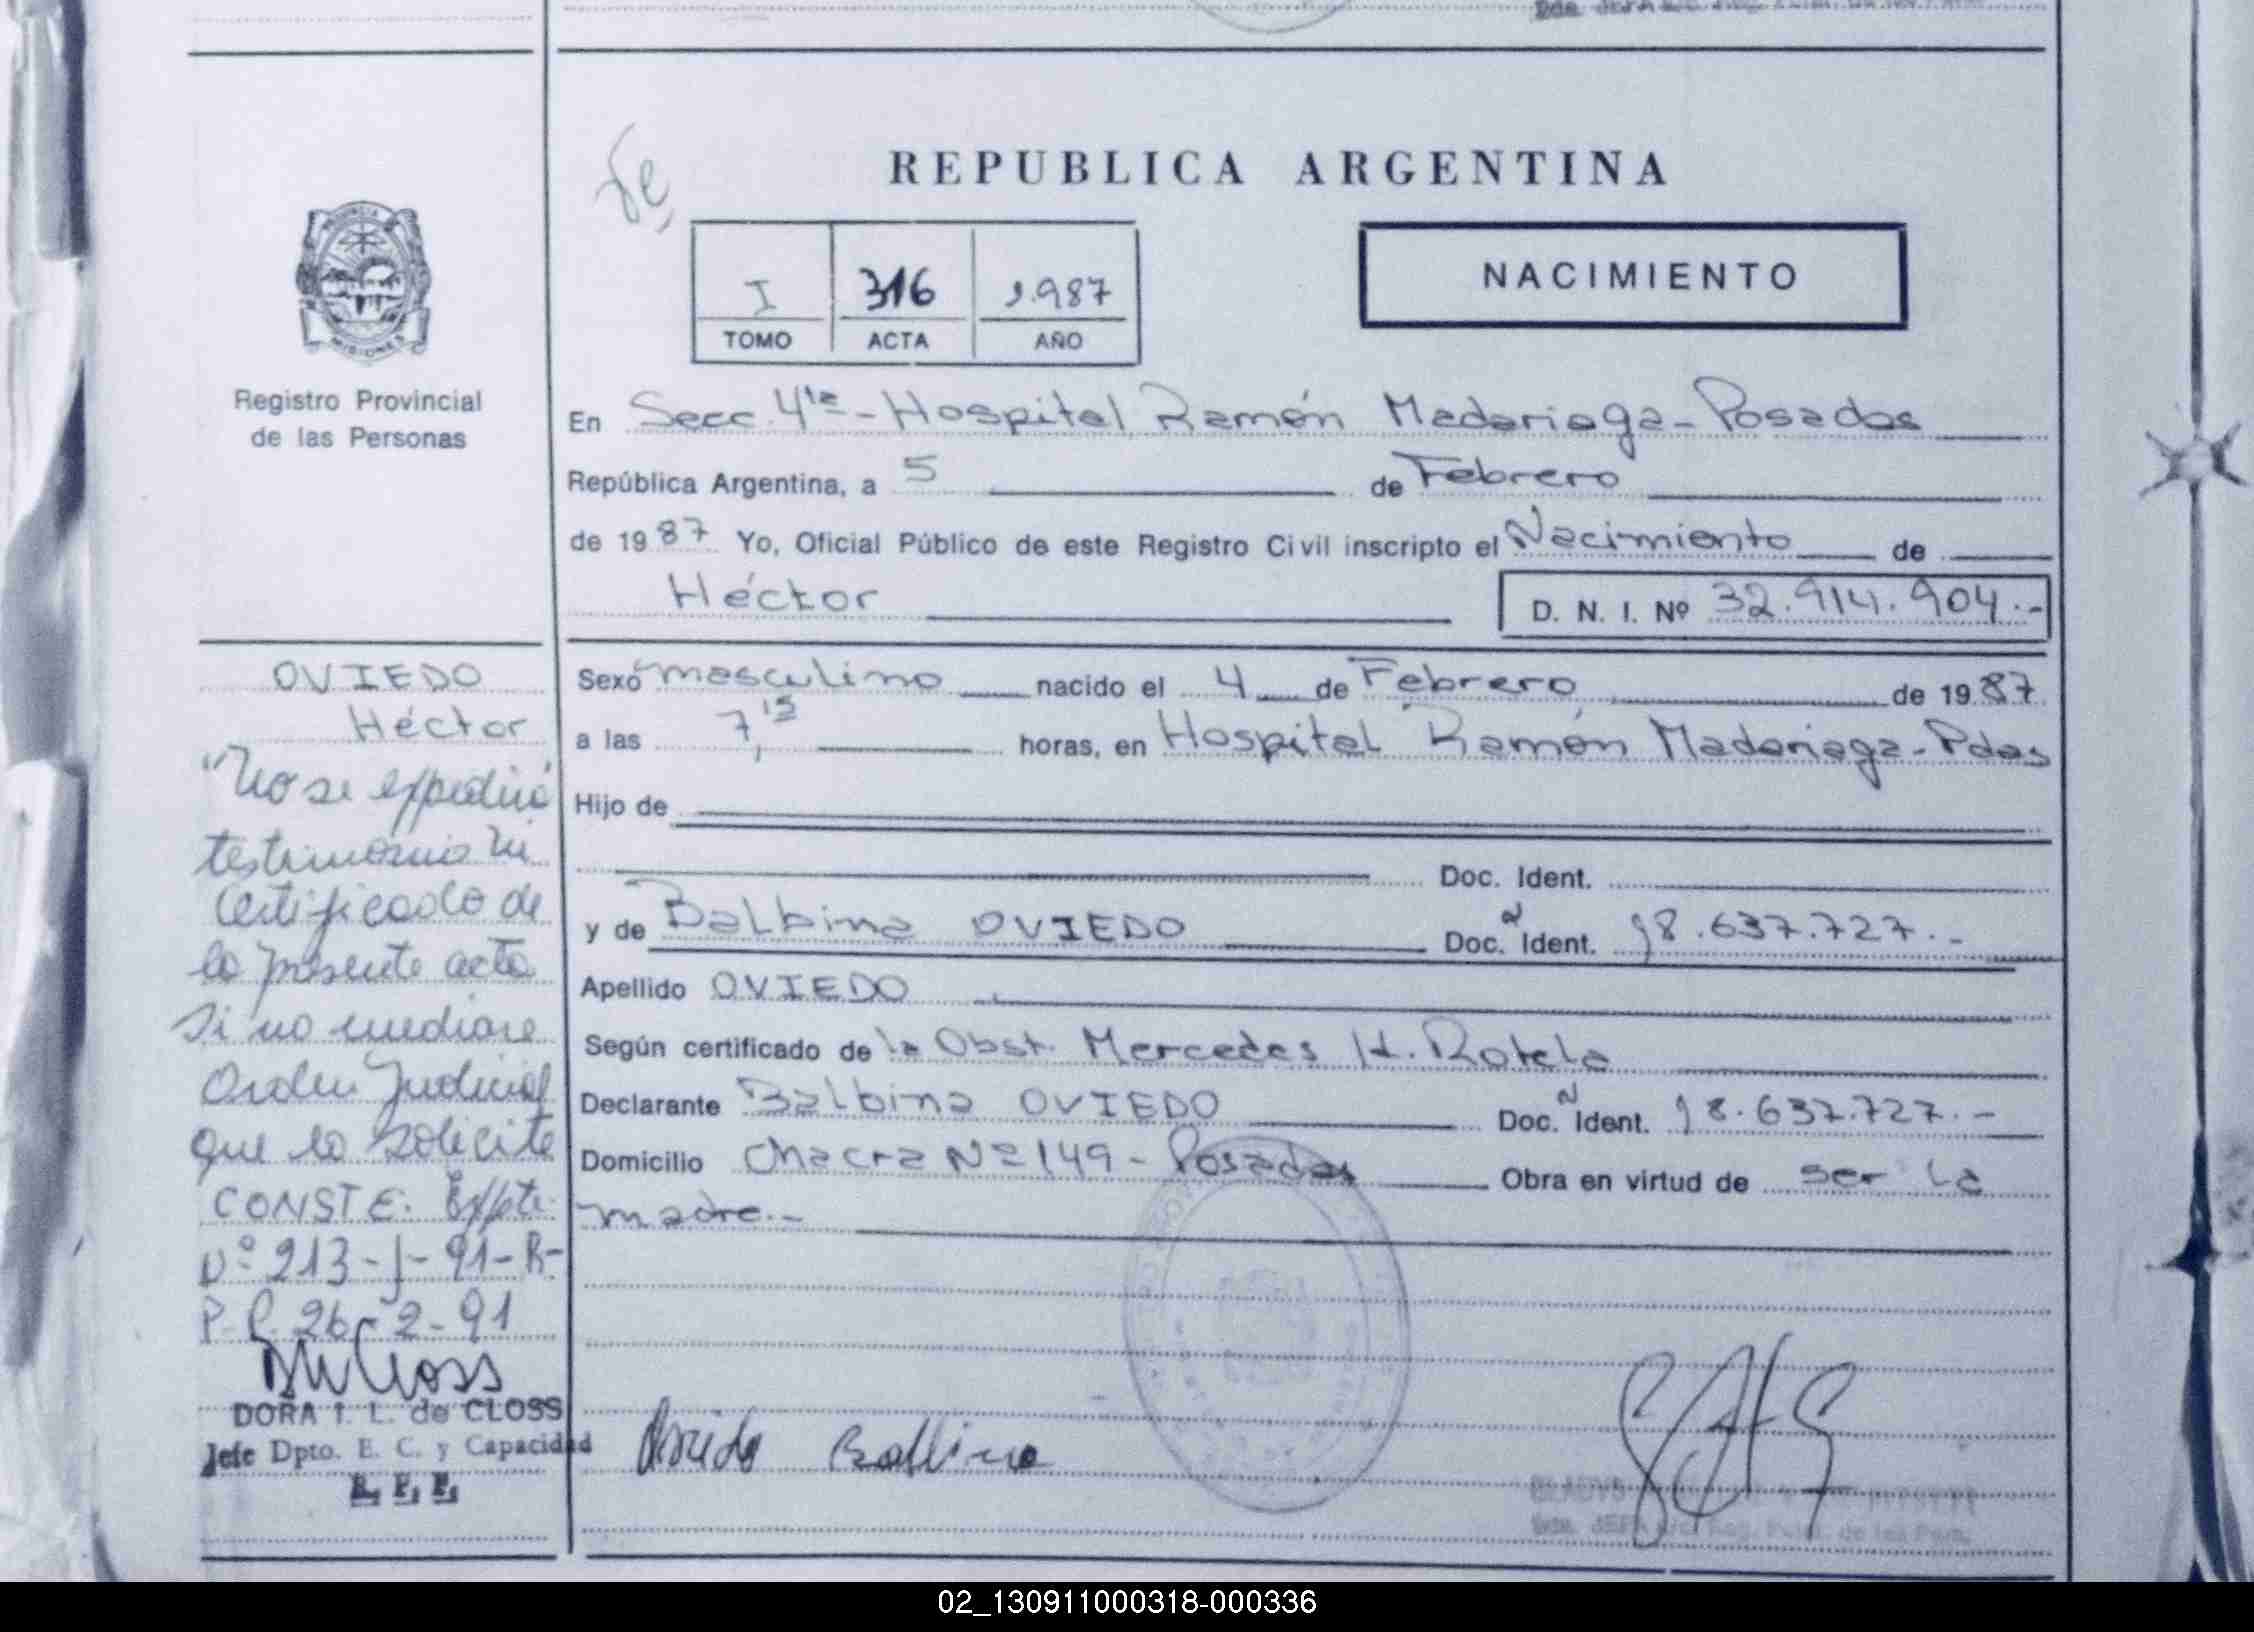 REPUBLICA ARGENTINA
I 316 1.987
TOMO ACTA AÑO
NACIMIENTO
MISIONES
Registro Provincial
de las Personas
En Secc. 4ta - Hospital Ramón Madariaga - Posadas
República Argentina, a 5 de Febrero
de 1987 Yo, Oficial Público de este Registro Civil inscripto el Nacimiento de
Héctor D. N. I. Nº 32.914.904.-
OVIEDO
Héctor
"No se expedirá
testimonio ni
Certificado de
la presente acta
si no mediare
Orden Judicial
que lo solicite
CONSTE. Expte.
Nº 213-J-91-R-
P.P. 26-2-91
DORA I. L. de CLOSS
Jefe Dpto. E. C. y Capacidad
R. P. P.
Sexo masculino nacido el 4 de Febrero de 1987
a las 7,15 horas, en Hospital Ramón Madariaga - Pdas
Hijo de
Doc. Ident.
y de Balbina OVIEDO Doc. Ident. 18.637.727.-
Apellido OVIEDO
Según certificado de la Obst. Mercedes H. Rotela
Declarante Balbina OVIEDO Doc. Ident. 18.637.727.-
Domicilio Chacra Nº 149 - Posadas Obra en virtud de ser la
madre.-
Oviedo Balbina
GLADYS
02_130911000318-000336